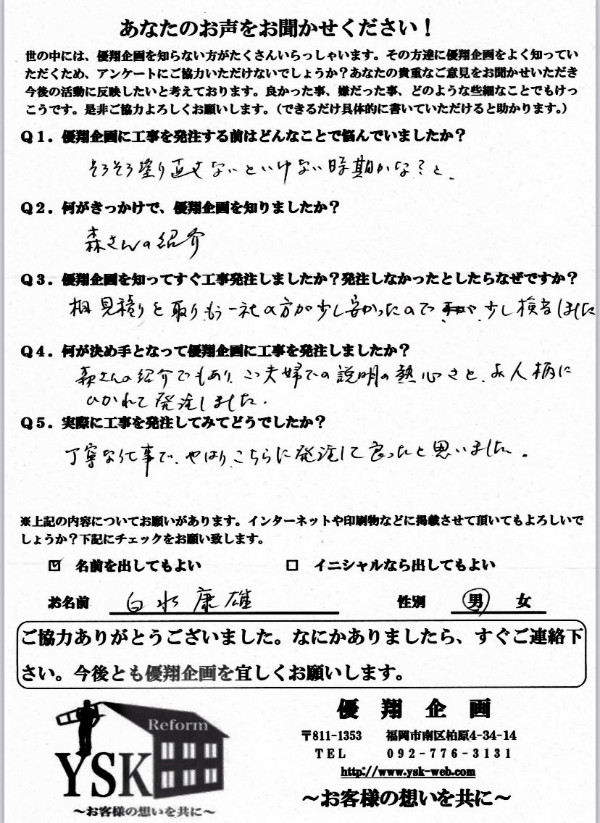 あなたのお声をお聞かせください！
世の中には、優翔企画を知らない方がたくさんいらっしゃいます。その方達に優翔企画をよく知ってい
ただくため、アンケートにご協力いただけないでしょうか？あなたの貴重なご意見をお聞かせいただき
今後の活動に反映したいと考えております。良かった事、嫌だった事、どのような些細なことでもけっ
こうです。是非ご協力よろしくお願いします。（できるだけ具体的に書いていただけると助かります。）
Q1．優翔企画に工事を発注する前はどんなことで悩んでいましたか？
そろそろ塗り直さないといけない時期かな？と、
Q2．何がきっかけで、優翔企画を知りましたか？
森さんの紹介
Q3．優翔企画を知ってすぐ工事発注しましたか？発注しなかったとしたらなぜですか？
相見積りを取りもう一社の方が少し安かったので 少し検討しました
Q4．何が決め手となって優翔企画に工事を発注しましたか？
森さんの紹介でもあり、ご夫婦での説明の熱心さと、お人柄に
ひかれて発注しました。
Q5．実際に工事を発注してみてどうでしたか？
丁寧な仕事で、やはり、こちらに発注して良かったと思いました。
※上記の内容についてお願いがあります。インターネットや印刷物などに掲載させて頂いてもよろしいで
しょうか？下記にチェックをお願い致します。
☑ 名前を出してもよい □ イニシャルなら出してもよい
お名前 白水 康雄 性別 男 女
ご協力ありがとうございました。なにかありましたら、すぐご連絡下
さい。今後とも優翔企画を宜しくお願いします。
Reform
YSK
～お客様の想いを共に～
優翔企画
〒811-1353 福岡市南区柏原4-34-14
TEL 092-776-3131
http://www.ysk-web.com
～お客様の想いを共に～